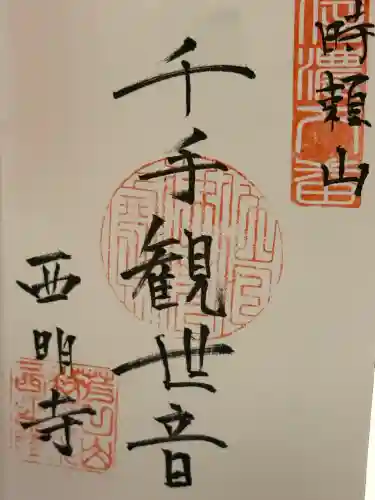 時頼山
千手観世音
西明寺